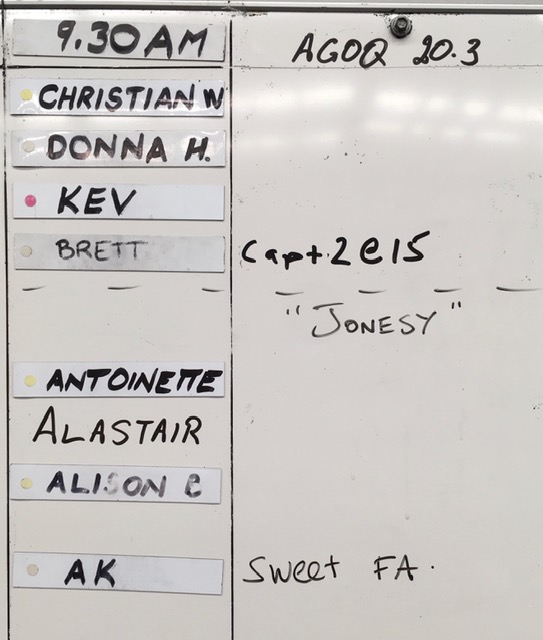 9.30AM AGOQ 20.3
CHRISTIAN W
DONNA H.
KEV
BRETT Capt. 2 @ 15
"JONESY"
ANTOINETTE
ALASTAIR
ALISON C
AK Sweet FA.